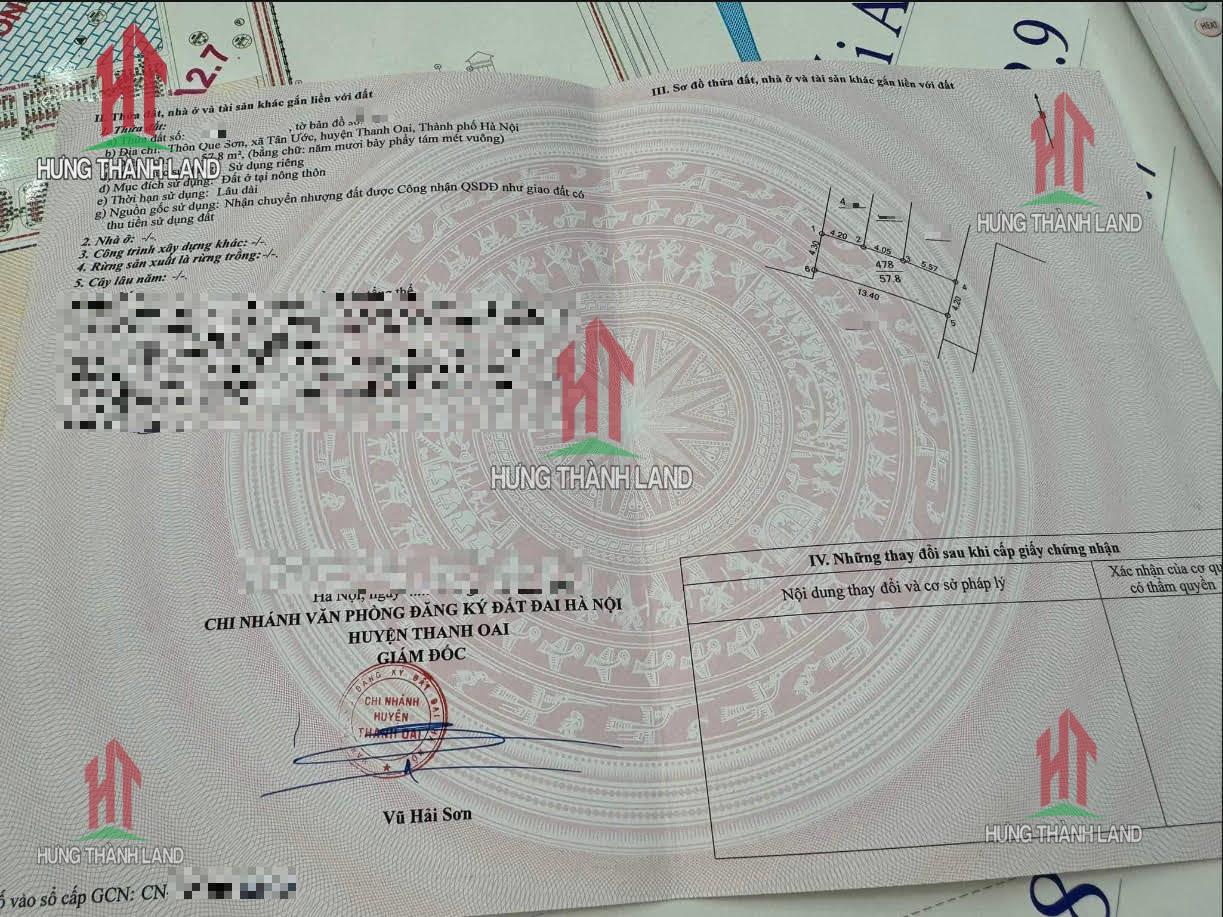 12.7
i A
9.9
HEAT
II. Thửa đất, nhà ở và tài sản khác gắn liền với đất
Thửa đất:
a) Thửa đất số: , tờ bản đồ
b) Địa chỉ: Thôn Quế Sơn, xã Tân Ước, huyện Thanh Oai, Thành phố Hà Nội
57.8 m², (bằng chữ: năm mươi bảy phẩy tám mét vuông)
Sử dụng riêng
d) Mục đích sử dụng: Đất ở tại nông thôn
e) Thời hạn sử dụng: Lâu dài
g) Nguồn gốc sử dụng: Nhận chuyển nhượng đất được Công nhận QSDĐ như giao đất có
thu tiền sử dụng đất
2. Nhà ở: -/-
3. Công trình xây dựng khác: -/-.
4. Rừng sản xuất là rừng trồng: -/-.
5. Cây lâu năm: -/-.
Hà Nội, ngày
CHI NHÁNH VĂN PHÒNG ĐĂNG KÝ ĐẤT ĐAI HÀ NỘI
HUYỆN THANH OAI
GIÁM ĐỐC
ĐĂNG KÝ ĐẤT ĐAI
CHI NHÁNH
HUYỆN
THANH OAI
Vũ Hải Sơn
vào sổ cấp GCN: CN
III. Sơ đồ thửa đất, nhà ở và tài sản khác gắn liền với đất
4
1
4.20
2
4.05
3
5.57
4
4.30
478
57.8
4.20
6
13.40
5
IV. Những thay đổi sau khi cấp giấy chứng nhận
Nội dung thay đổi và cơ sở pháp lý
Xác nhận của cơ qu
có thẩm quyền
8
HT
HƯNG THÀNH LAND
HT
HƯNG THÀNH LAND
HT
HƯNG THÀNH LAND
HT
HƯNG THÀNH LAND
HT
HƯNG THÀNH LAND